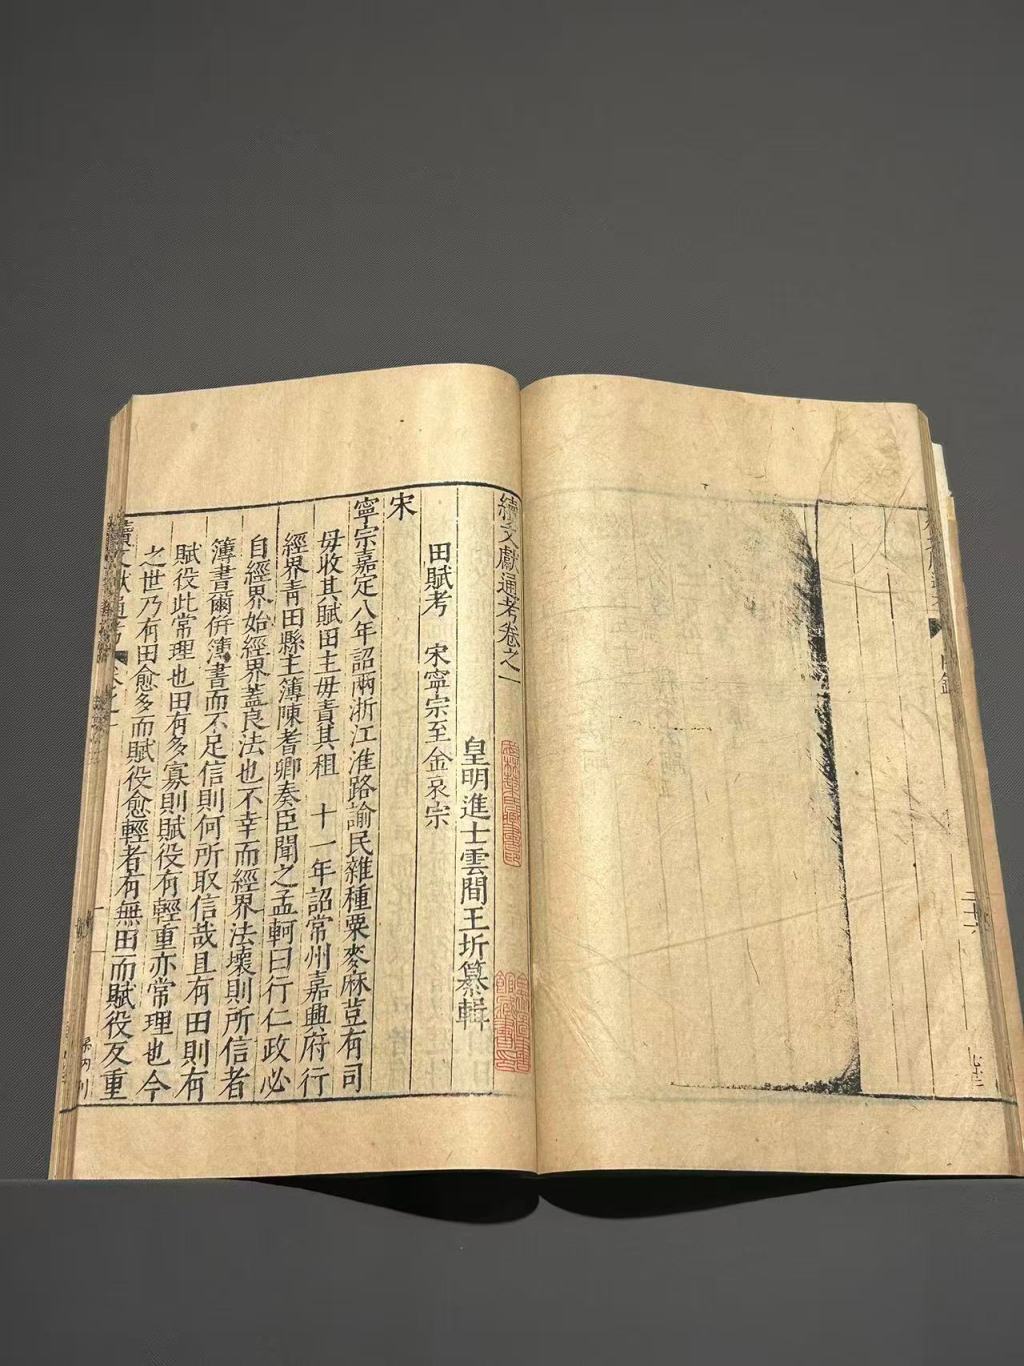 續文獻通考卷之一
皇明進士雲間王圻纂輯
田賦考　宋寧宗至金哀宗
宋
寧宗嘉定八年詔兩浙江淮路諭民雜種粟麥麻荳有司
毋收其賦田主毋責其租　十一年詔常州嘉興府行
經界青田縣主簿陳耆卿奏臣聞之孟軻曰行仁政必
自經界始經界蓋良法也不幸而經界法壞則所信者
簿書爾併簿書而不足信則何所取信哉且有田則有
賦役此常理也田有多寡則賦役有輕重亦常理也今
之世乃有田愈多而賦役愈輕者有無田而賦役反重
續文獻通考　卷之一